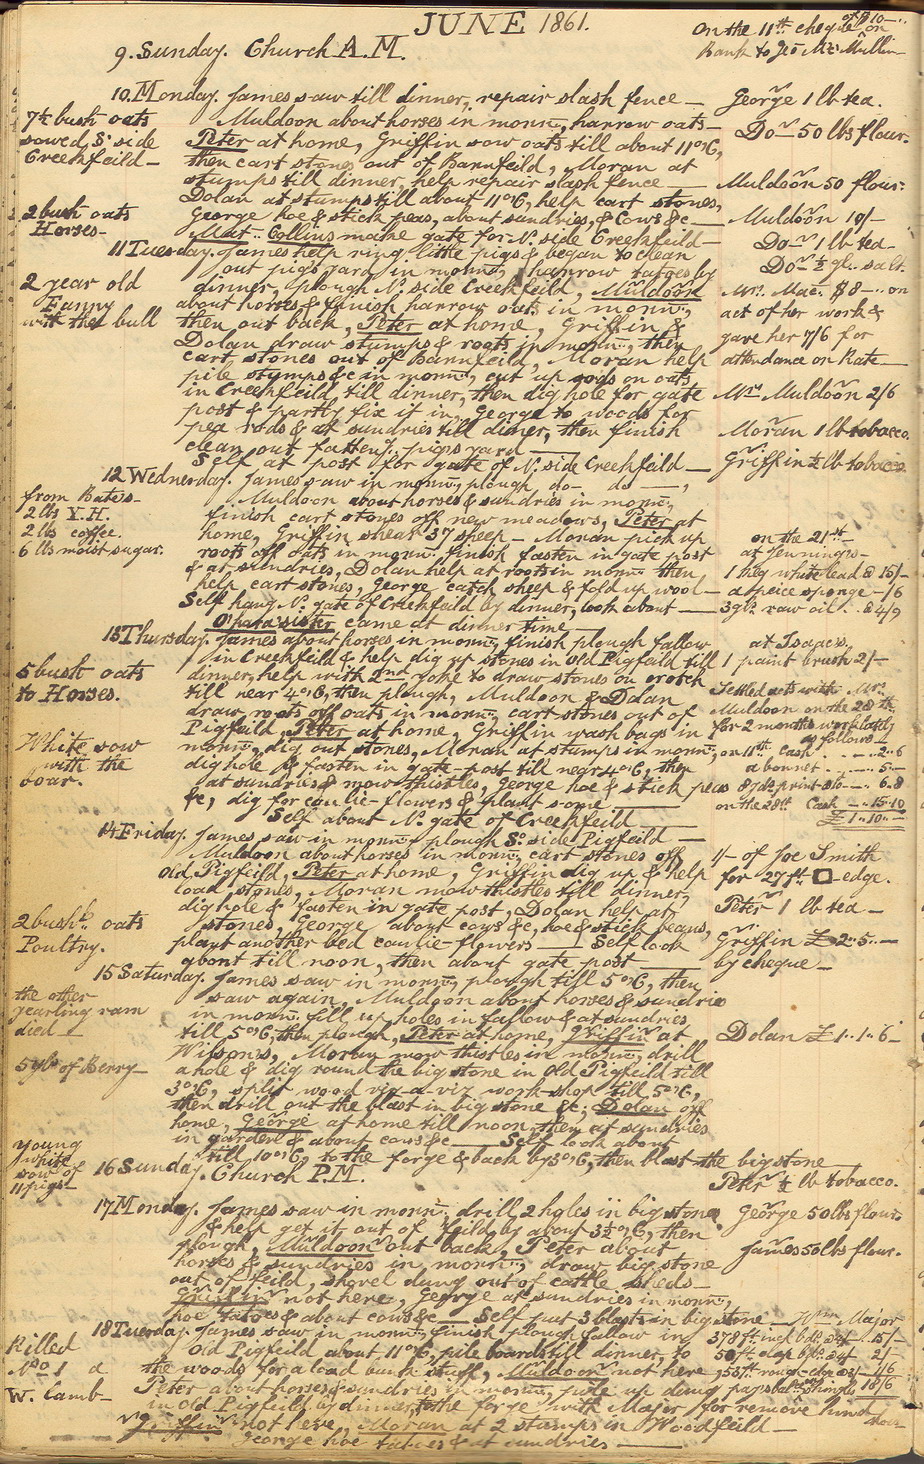 JUNE 1861.
On the 11th cheque of $10 on
Bank to Geo Mc Mullin
9. Sunday. Church A.M.
10. Monday. James saw till dinner, repair slash fence — George 1 lb tea.
7½ bush oats Muldoon about horses in mornn, harrow oats — Do 50 lbs flour.
sowed S. side Peter at home, Griffin sow oats till about 11 o'C,
Creekfeild — then cart stones out of Barnfeild, Moran at
stumps till dinner, help repair slash fence — Muldoon 50 flour.
Dolan at stumps till about 11 o'C, help cart stones,
2 bush oats George hoe & stick peas, about sundries, & Cows &c — Muldoon 10/-
Horses - Mat. Collins make gate for N. side Creekfeild — Do 1 lb tea —
11 Tuesday. James help ring little pigs & began to clean Do ½ gl. salt.
out pigs yard in mornn, harrow tatoes by
2 year old dinner, plough N. side Creekfeild, Muldoon Mrs. Mac. $8 - on
Fanny about horses & finish harrow oats in mornn, act of her work &
with the bull then out back, Peter at home, Griffin & gave her 7/6 for
Dolan draw stumps & roots in mornn, then attendance on Kate —
cart stones out of Barnfeild, Moran help
pile stumps &c in mornn, cut up sods on oats
in Creekfeild till dinner, then dig hole for gate Mrs Muldoon 2/6
post & partly fix it in, George to woods for
pea rods & at sundries till dinner, then finish Moran 1 lb tobacco.
clean out fatteng pigs yard —
Self at post for gate of N. side Creekfeild — Griffin ½ lb tobacco
12 Wednesday. James saw in mornn, plough do — do —,
from Bates - Muldoon about horses & sundries in mornn,
2 lbs Y.H. finish cart stones off new meadows, Peter at
2 lbs coffee. home, Griffin shear 37 sheep — Moran pick up on the 21st —
6 lbs moist sugar. roots off oats in mornn finish fasten in gate post at Jennings —
& at sundries, Dolan help at roots in mornn then 1 keg white lead @ 15/-
help cart stones, George catch sheep & fold up wool — a peice sponge - /6
Self hang N. gate of Creekfeild by dinner, look about — 3 gls. raw oil . @ 4/9
O'hara sister came at dinner time —
13 Thursday. James about horses in mornn, finish plough fallow at Isaac's,
in Creekfeild & help dig up stones in Old Pigfeild till 1 paint brush 2/-
5 bush oats dinner, help with 2nd yoke to draw stones on crotch
to Horses. till near 4 o'C, then plough, Muldoon & Dolan Settled acts with Mrs.
draw roots off oats in mornn, cart stones out of Muldoon on the 28th
Pigfeild, Peter at home, Griffin wash bags in for 2 months work lately
White sow mornn, dig out stones, Moran at stumps in mornn, as follows —
with the dig hole & fasten in gate-post till near 4 o'C, then on 11th cash . . . 2.. 6
boar. at sundries & mow thistles, George hoe & stick peas a bonnet . . . 5.. —
&c, dig for caulie-flowers & plant some — 8 yds. print 6.. 8
Self about N. gate of Creekfeild — on the 28th Cash —. 15.10
£1..10.. —
14 Friday. James saw in mornn, plough S. side Pigfeild —
Muldoon about horses in mornn, cart stones off 1/- of Joe Smith
Old Pigfeild, Peter at home, Griffin dig up & help for 27 ft. □ edge.
load stones, Moran mow thistles till dinner,
dig hole & fasten in gate post, Dolan help at Peter 1 lb tea —
2 bushls oats stones, George about cows &c, hoe & stick beans,
Poultry. plant another bed caulie-flowers — Self look Griffin £2..5..—
about till noon, then about gate post — by cheque —
15 Saturday. James saw in mornn, plough till 5 o'C, then
the other saw again, Muldoon about horses & sundries
yearling ram in mornn fill up holes in fallow & at sundries
died — till 5 o'C, then plough, Peter at home, Griffin at Dolan £1..1..6 —
Wilson's, Moran mow thistles in mornn, drill
5 gls of Berry — a hole & dig round the big stone in Old Pigfeild till
3 o'C, split wood vig-a-viz work-shop till 5 o'C,
then drill out the blast in big stone &c, Dolan off
home, George at home till noon, then at sundries
in garden & about cows &c — Self look about
young till 10 o'C, to the forge & back by 3 o'C, then blast the big stone
white
sow of 16 Sunday. Church P.M.
11 pigs — Peter ½ lb tobacco.
17 Monday. James saw in mornn, drill 2 holes in big stone George 50 lbs flour.
& help get it out of feild by about 3½ o'C, then
plough, Muldoon out back, Peter about James 50 lbs flour.
horses & sundries in mornn, draw big stone
out of feild, shovel dung out of cattle sheds —
Griffin not here, George at sundries in mornn,
hoe tatoes & about cows &c — Self put 3 blasts in big stone — Wm Major
18 Tuesday. James saw in mornn, finish plough fallow in 378 ft inch bds 15/-
Killed Old Pigfeild about 11 o'C, pile boards till dinner, to 50 ft clap 2/-
No 1 a the woods for a load bush stuff, Muldoon not here 53 ft rough-edge 1/6
W. lamb — Peter about horses & sundries in mornn, pile up dung pays bal. on shingles 18/6
in Old Pigfeild by dinner, to the forge with Major for remove hind shoes
Griffin not here, Moran at 2 stumps in Woodfeild —
George hoe tatoes & at sundries —